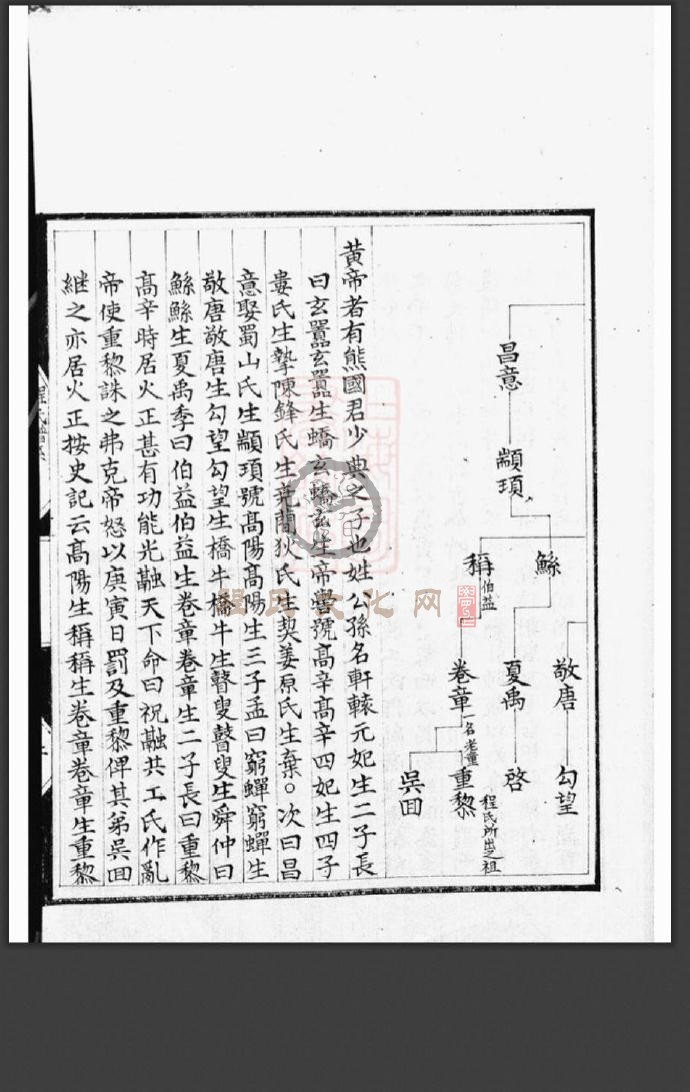 昌意
顓頊
鯀
稱伯益
敬唐
夏禹
卷章一名老童
勾望
啓
重黎程氏所出之祖
吳回
黃帝者有熊國君少典之子也姓公孫名軒轅元妃生二子長
曰玄囂玄囂生蟜玄蟜玄生帝嚳號高辛高辛四妃生四子
婁氏生摯陳鋒氏生堯蕳狄氏生契姜原氏生棄○次曰昌
意娶蜀山氏生顓頊號高陽高陽生三子孟曰窮蟬窮蟬生
敬唐敬唐生勾望勾望生橋牛橋牛生瞽叟瞽叟生舜仲曰
鯀鯀生夏禹季曰伯益伯益生卷章卷章生二子長曰重黎
高辛時居火正甚有功能光融天下命曰祝融共工氏作亂
帝使重黎誅之弗克帝怒以庚寅日罰及重黎俾其弟吳回
継之亦居火正按史記云高陽生稱稱生卷章卷章生重黎